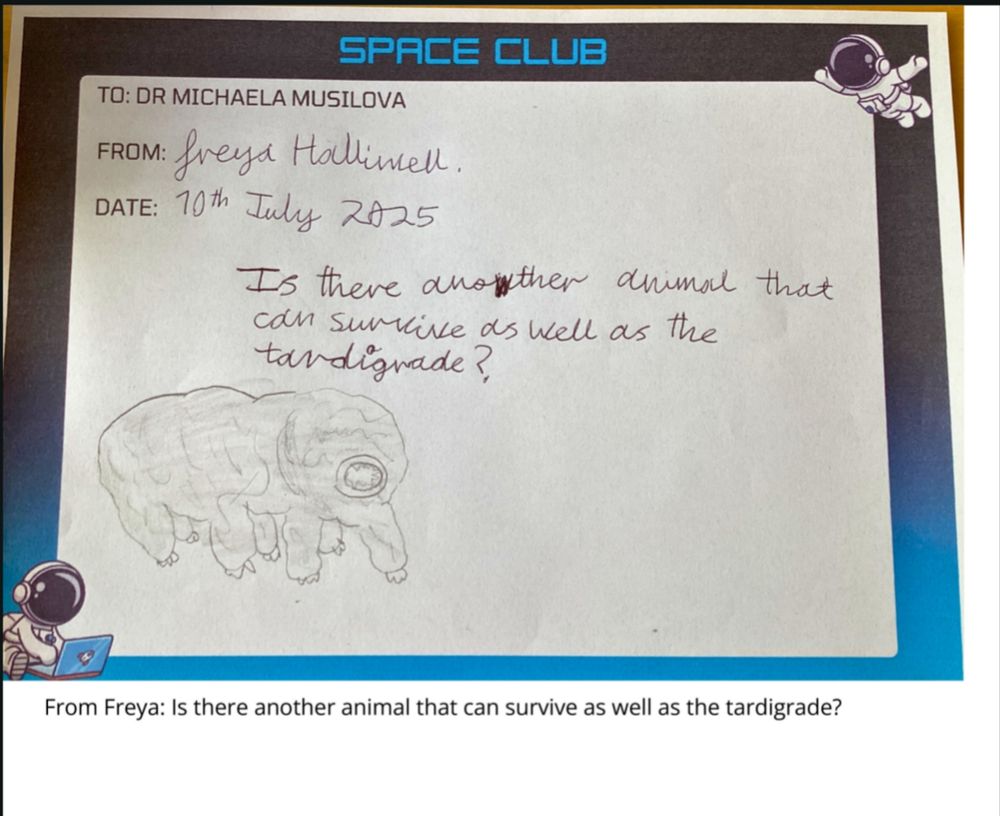 SPACE CLUB
TO: DR MICHAELA MUSILOVA
FROM: Freya Halliwell.
DATE: 10th July 2025
Is there another animal that
can survive as well as the
tardigrade?
From Freya: Is there another animal that can survive as well as the tardigrade?